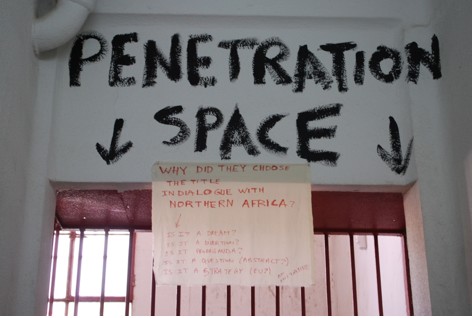 PENETRATION
SPACE
WHY DID THEY CHOOSE
THE TITLE
IN DIALOGUE WITH
NORTHERN AFRICA?
IS IT A DREAM?
IS IT A
IS IT
IS IT A QUESTION
IS IT A